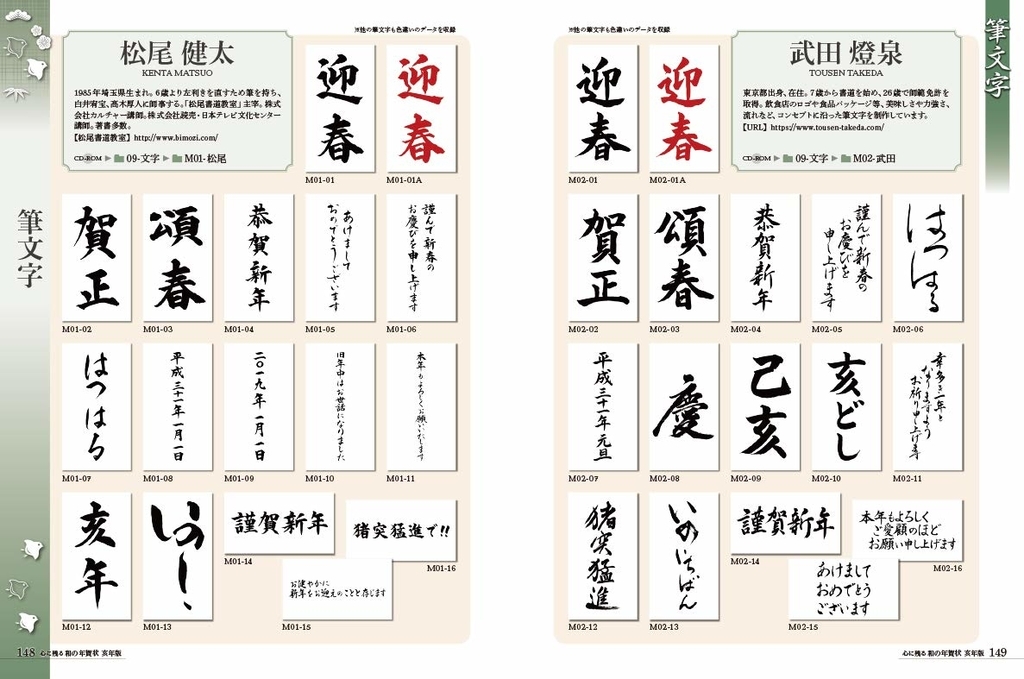 筆文字
※他の筆文字も色違いのデータを収録
松尾 健太
KENTA MATSUO
1985年埼玉県生まれ。6歳より左利きを直すため筆を持ち、
白井宥宝、高木厚人に師事する。「松尾書道教室」主宰。株式
会社カルチャー講師。株式会社読売・日本テレビ文化センター
講師。著書多数。
【松尾書道教室】http://www.bimozi.com/
CD-ROM ▶ 09-文字 ▶ M01-松尾
迎春
M01-01
迎春
M01-01A
賀正
M01-02
頌春
M01-03
恭賀新年
M01-04
あけまして
おめでとうございます
M01-05
謹んで新春の
お慶びを申し上げます
M01-06
はつはる
M01-07
平成三十一年一月一日
M01-08
二〇一九年一月一日
M01-09
旧年中はお世話になりました
M01-10
本年もよろしくお願いいたします
M01-11
亥年
M01-12
いのしし
M01-13
謹賀新年
M01-14
お健やかに
新年をお迎えのことと存じます
M01-15
猪突猛進で!!
M01-16
148 心に残る 和の年賀状 亥年版
※他の筆文字も色違いのデータを収録
武田 燈泉
TOUSEN TAKEDA
東京都出身、在住。7歳から書道を始め、26歳で師範免許を
取得。飲食店のロゴや食品パッケージ等、美味しさや力強さ、
流れなど、コンセプトに沿った筆文字を制作しています。
【URL】https://www.tousen-takeda.com/
CD-ROM ▶ 09-文字 ▶ M02-武田
筆文字
迎春
M02-01
迎春
M02-01A
賀正
M02-02
頌春
M02-03
恭賀新年
M02-04
謹んで新春の
お慶びを
申し上げます
M02-05
はつはる
M02-06
平成三十一年 元旦
M02-07
慶
M02-08
己亥
M02-09
亥どし
M02-10
幸多き年と
なりますよう
お祈り申し上げます
M02-11
猪突猛進
M02-12
いのいちばん
M02-13
謹賀新年
M02-14
あけまして
おめでとう
ございます
M02-15
本年もよろしく
ご愛顧のほど
お願い申し上げます
M02-16
心に残る 和の年賀状 亥年版 149